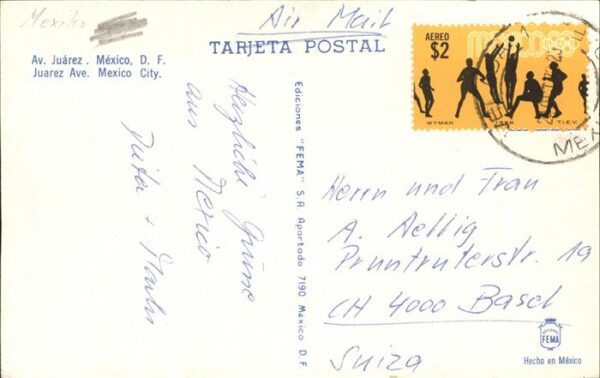 Mexiko
Air Mail
TARJETA POSTAL
Av. Juárez . México, D. F.
Juarez Ave. Mexico City.
Herzliche Grüsse
aus
Mexico
Ediciones "FEMA" S.A Apartado 7190 Mexico D.F
AEREO
$2
WYMAN
T.I.E.V.
MEX
Herrn und Frau
A. Aellig
Pruntruterstr. 19
CH 4000 Basel
Suiza
FEMA
Hecho en México